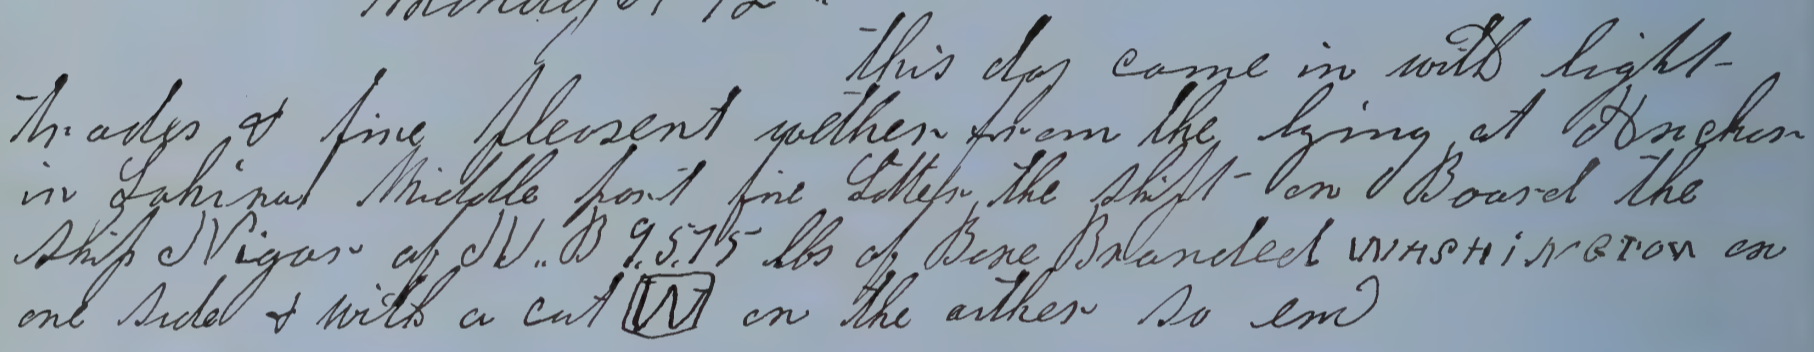 Monday 12
this day came in with light
trades & fine pleasent wether from the lying at Ancher
in Lahina Middle part fine Latter the shipt on Board the
ship Nigar of N..B 9,575 lbs of Bone Branded WASHiNGTON on
one side & with a cut W on the other so end